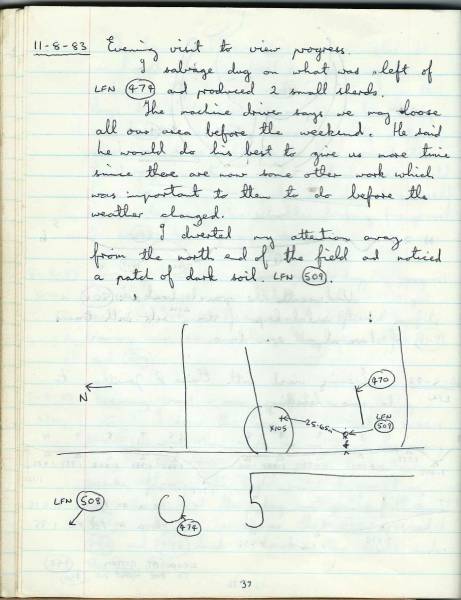 11-8-83 Evening visit to view progress.
I salvage dug on what was left of
LFN 474 and produced 2 small sherds.
The machine driver says we may loose
all our area before the weekend. He said
he would do his best to give us more time
since there are now some other work which
was important to them to do before the
weather changed.
I diverted my attention away
from the north end of the field and noticed
a patch of dark soil. LFN 509.
N
470
X105
25.65m
LFN
509
LFN 508
474
37